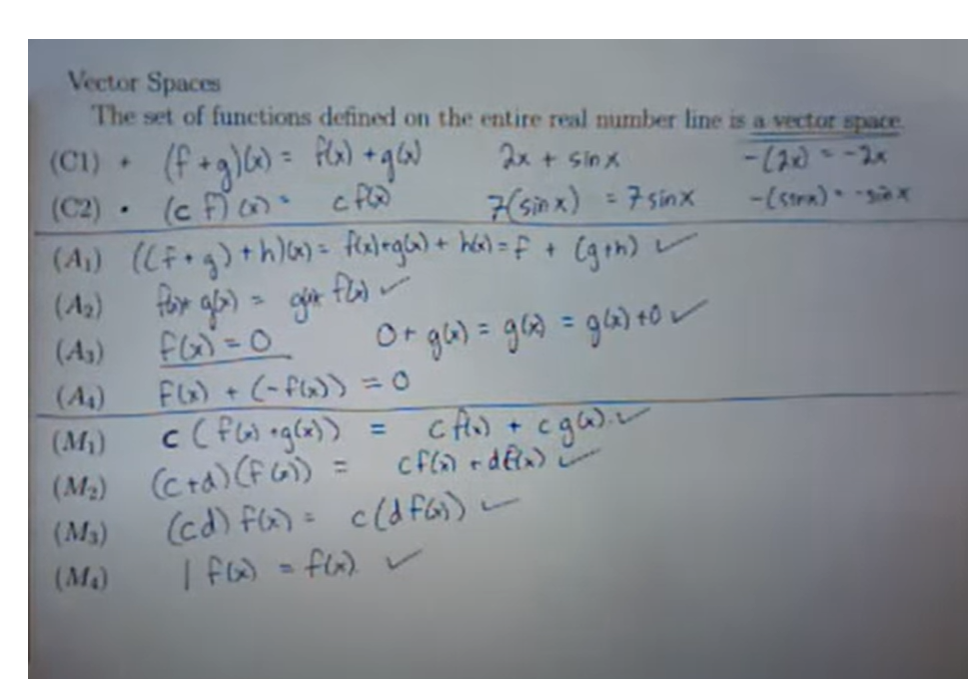 Vector Spaces
The set of functions defined on the entire real number line is a vector space.
(C1) + (f + g)(x) = f(x) + g(x) 2x + sin x -(2x) = -2x
(C2) • (c f)(x) = c f(x) 7(sin x) = 7 sin x -(sin x) = -sin x
(A₁) ((f + g) + h)(x) = f(x) + g(x) + h(x) = f + (g+h) ✓
(A₂) f(x) + g(x) = g(x) + f(x) ✓
(A₃) f(x) = 0 0 + g(x) = g(x) = g(x) + 0 ✓
(A₄) f(x) + (-f(x)) = 0
(M₁) c (f(x) + g(x)) = c f(x) + c g(x). ✓
(M₂) (c+d)(f(x)) = cf(x) + df(x) ✓
(M₃) (cd) f(x) = c(d f(x)) ✓
(M₄) 1 f(x) = f(x). ✓